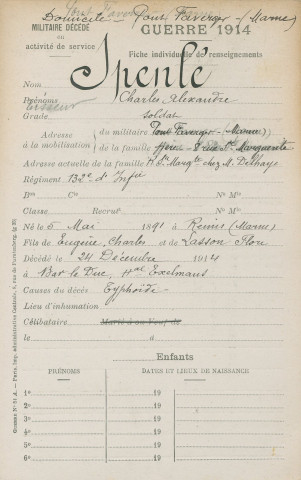 Domicile Pont Faverger (Marne)
MILITAIRE DÉCÉDÉ
en
activité de service
GUERRE 1914
Fiche individuelle de renseignements
Nom Spenlé
Prénoms Charles Alexandre
Grade Soldat
Adresse à la mobilisation
du militaire Pont Faverger (Marne)
de la famille Marguerite
Adresse actuelle de la famille chez M. Delhaye
Régiment 132e d'Infie
Bon Cie No Mle
Classe Recrut No Mle
Né le 5 Mai 1891 à Reims (Marne)
Fils de Eugène, Charles et de Lasson
Décédé le 24 Décembre 1914
à Bar le Duc, Hal Exelmans
Causes du décès Typhoïde
Lieu d'inhumation
Célibataire Marié à ou Veuf de
le à
Enfants
PRÉNOMS DATES ET LIEUX DE NAISSANCE
1o 19
2o 19
3o 19
4o 19
5o 19
6o 19